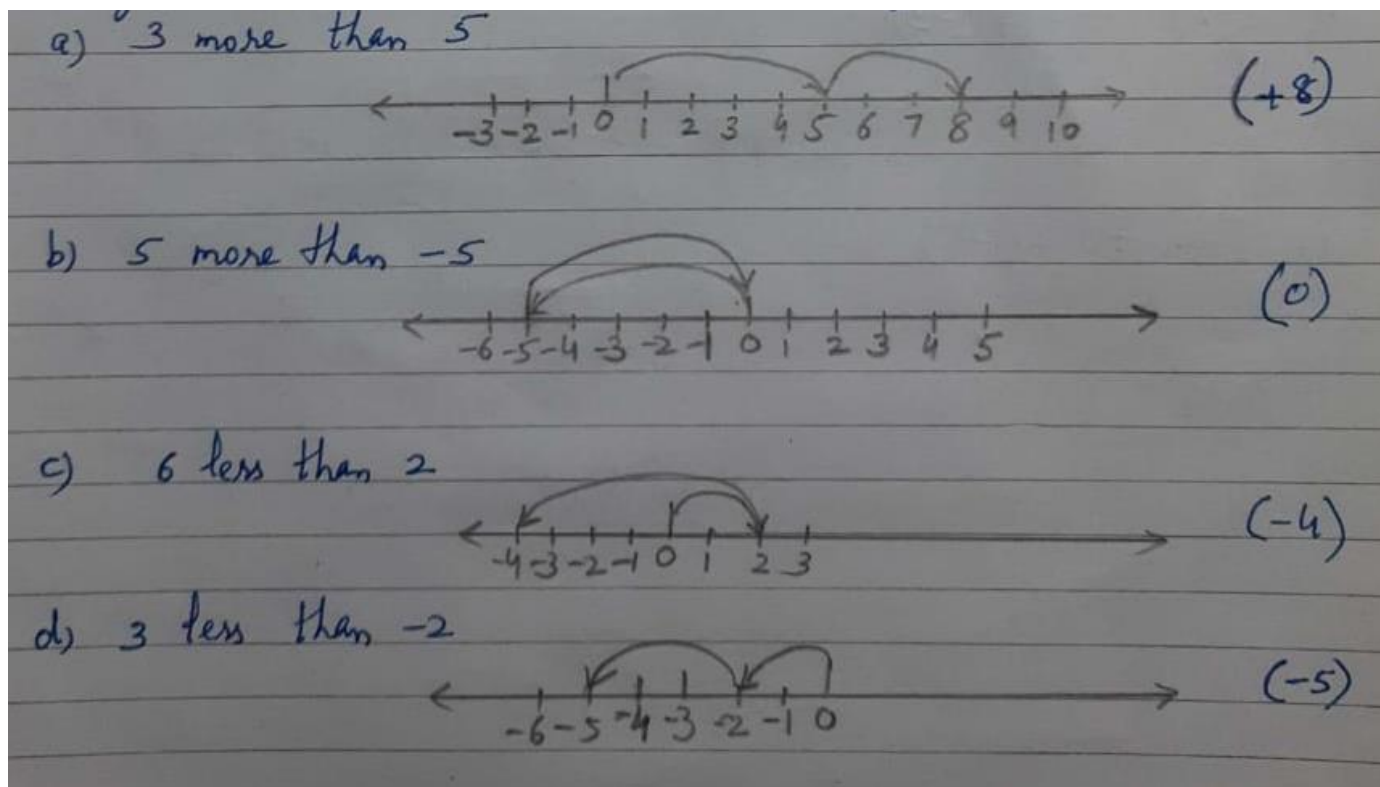 a) 3 more than 5
(+8)
-3 -2 -1 0 1 2 3 4 5 6 7 8 9 10
b) 5 more than -5
(0)
-6 -5 -4 -3 -2 -1 0 1 2 3 4 5
c) 6 less than 2
(-4)
-4 -3 -2 -1 0 1 2 3
d) 3 less than -2
(-5)
-6 -5 -4 -3 -2 -1 0